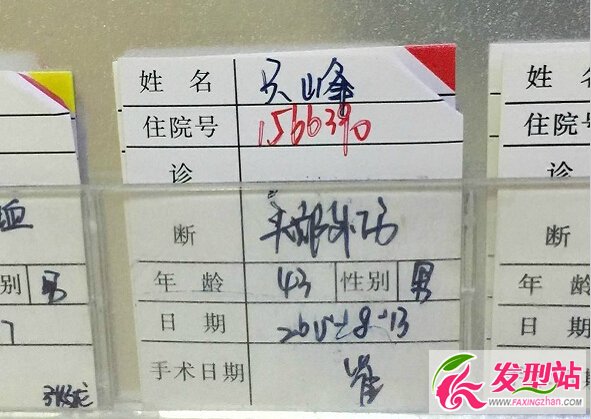 姓 名 吴山峰
住院号 1566390
诊
断 头部外伤
年 龄 43 性别 男
日 期 2015-8-13
手术日期 崔
血
别 男
7
姓 名
住院号
诊
断
年 龄
日 期
手术日期
发型站
WWW.FAXINGZHAN.COM